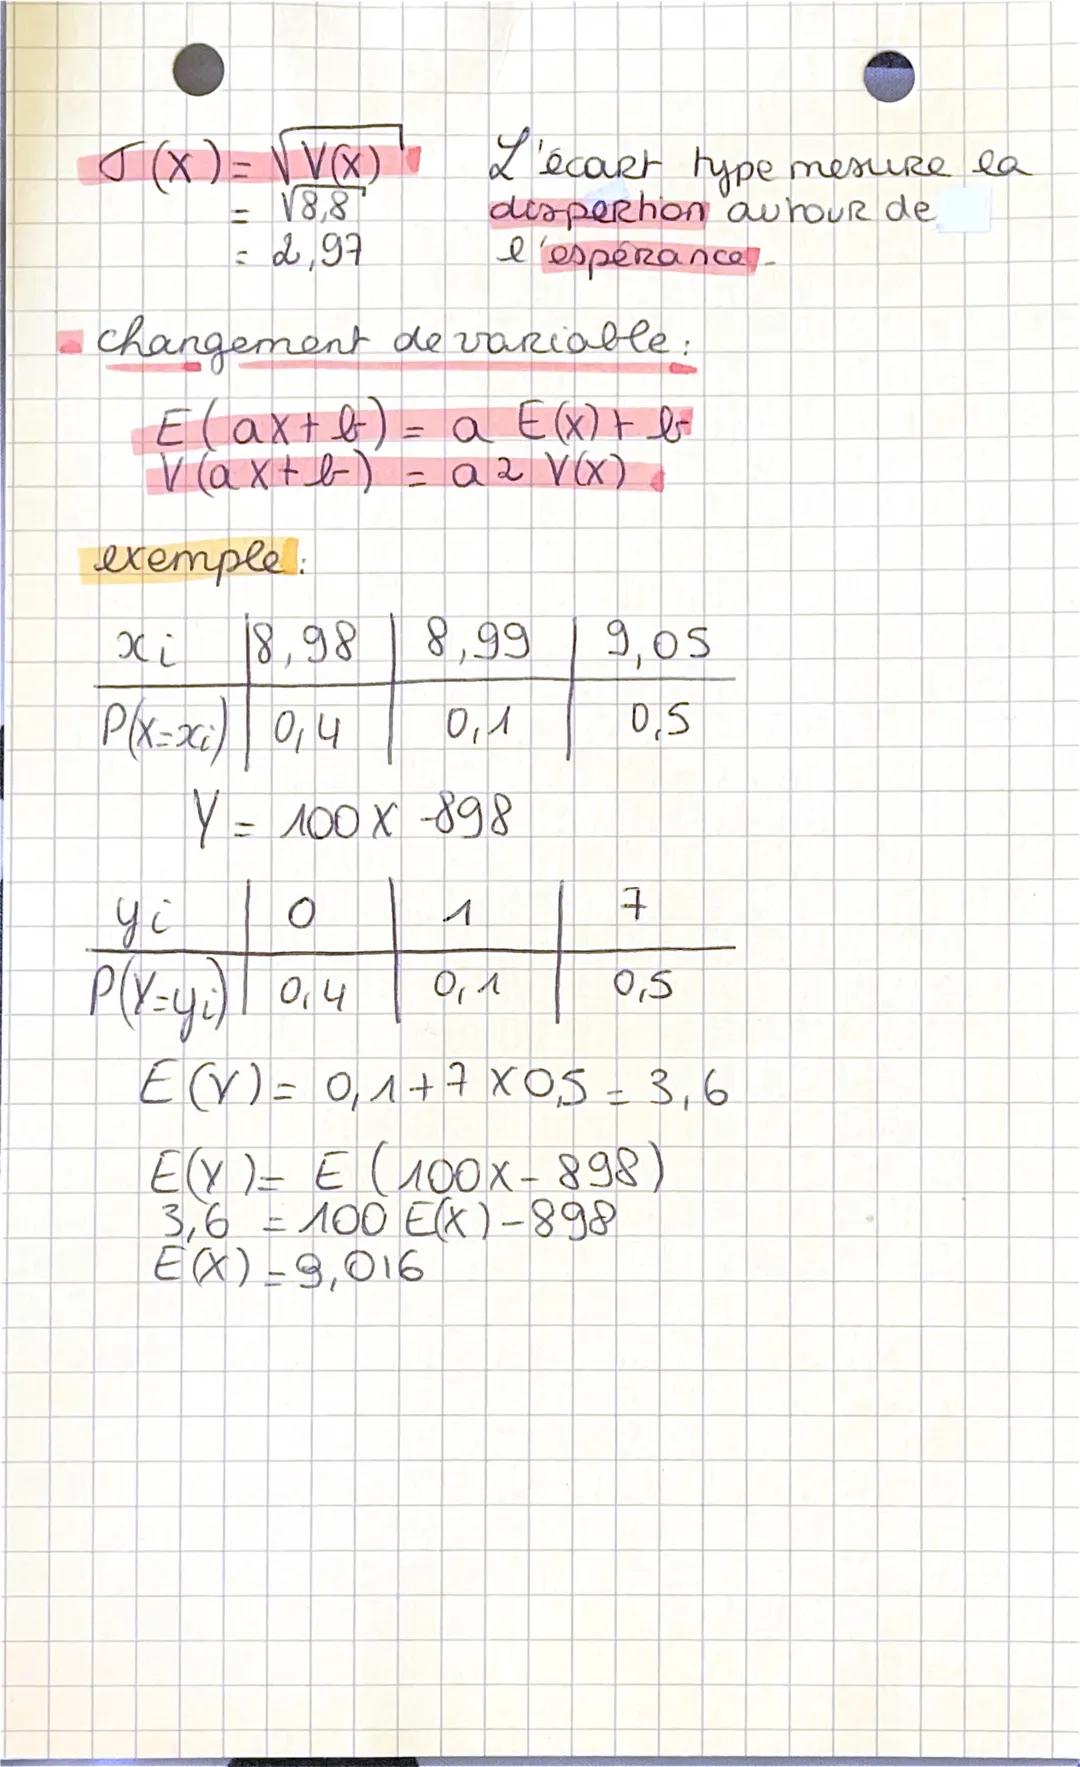 σ(X) = √V(X)
= √8,8
= 2,97
L'écart type mesure la
dispertion autour de
l'espérance.
changement de variable :
E(aX+b) = a E(X) + b
V(aX+b) = a2 V(X)
exemple :
xi | 8,98 | 8,99 | 9,05
P(X=xi) | 0,4 | 0,1 | 0,5
Y = 100X - 898
yi | 0 | 1 | 7
P(Y=yi) | 0,4 | 0,1 | 0,5
E(Y) = 0,1 + 7 × 0,5 = 3,6
E(Y) = E(100X - 898)
3,6 = 100 E(X) - 898
E(X) = 9,016